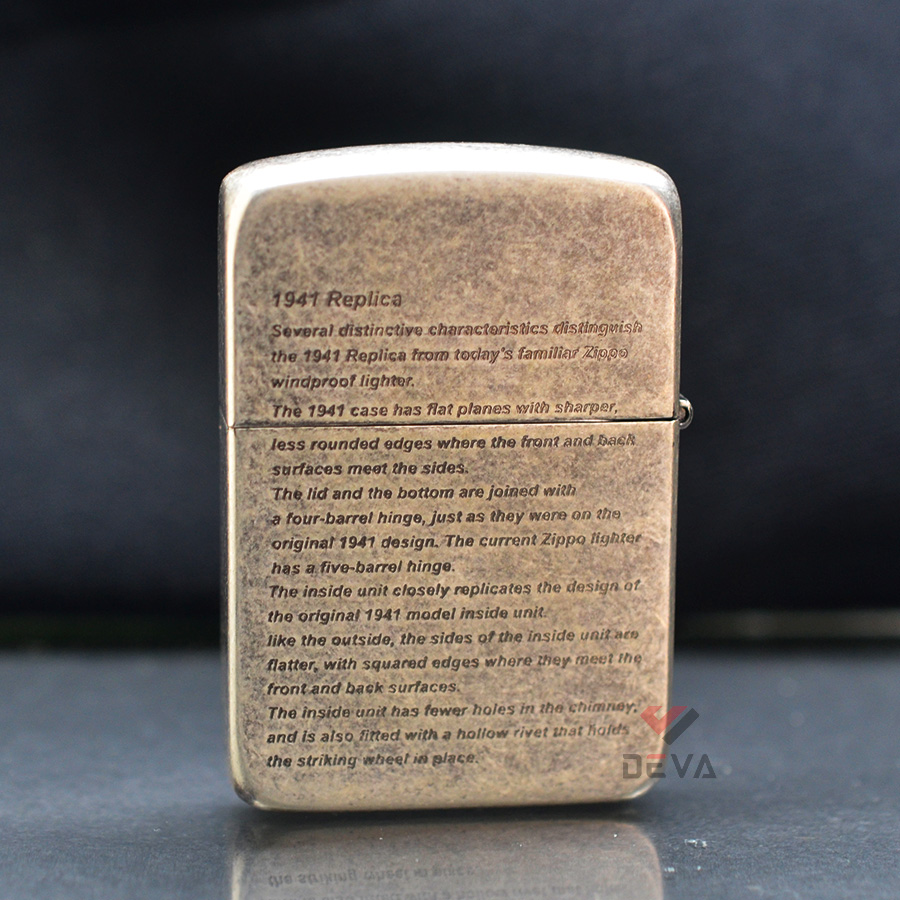 1941 Replica
Several distinctive characteristics distinguish
the 1941 Replica from today's familiar Zippo
windproof lighter.
The 1941 case has flat planes with sharper,
less rounded edges where the front and back
surfaces meet the sides.
The lid and the bottom are joined with
a four-barrel hinge, just as they were on the
original 1941 design. The current Zippo lighter
has a five-barrel hinge.
The inside unit closely replicates the design of
the original 1941 model inside unit.
like the outside, the sides of the inside unit are
flatter, with squared edges where they meet the
front and back surfaces.
The inside unit has fewer holes in the chimney,
and is also fitted with a hollow rivet that holds
the striking wheel in place.
DEVA